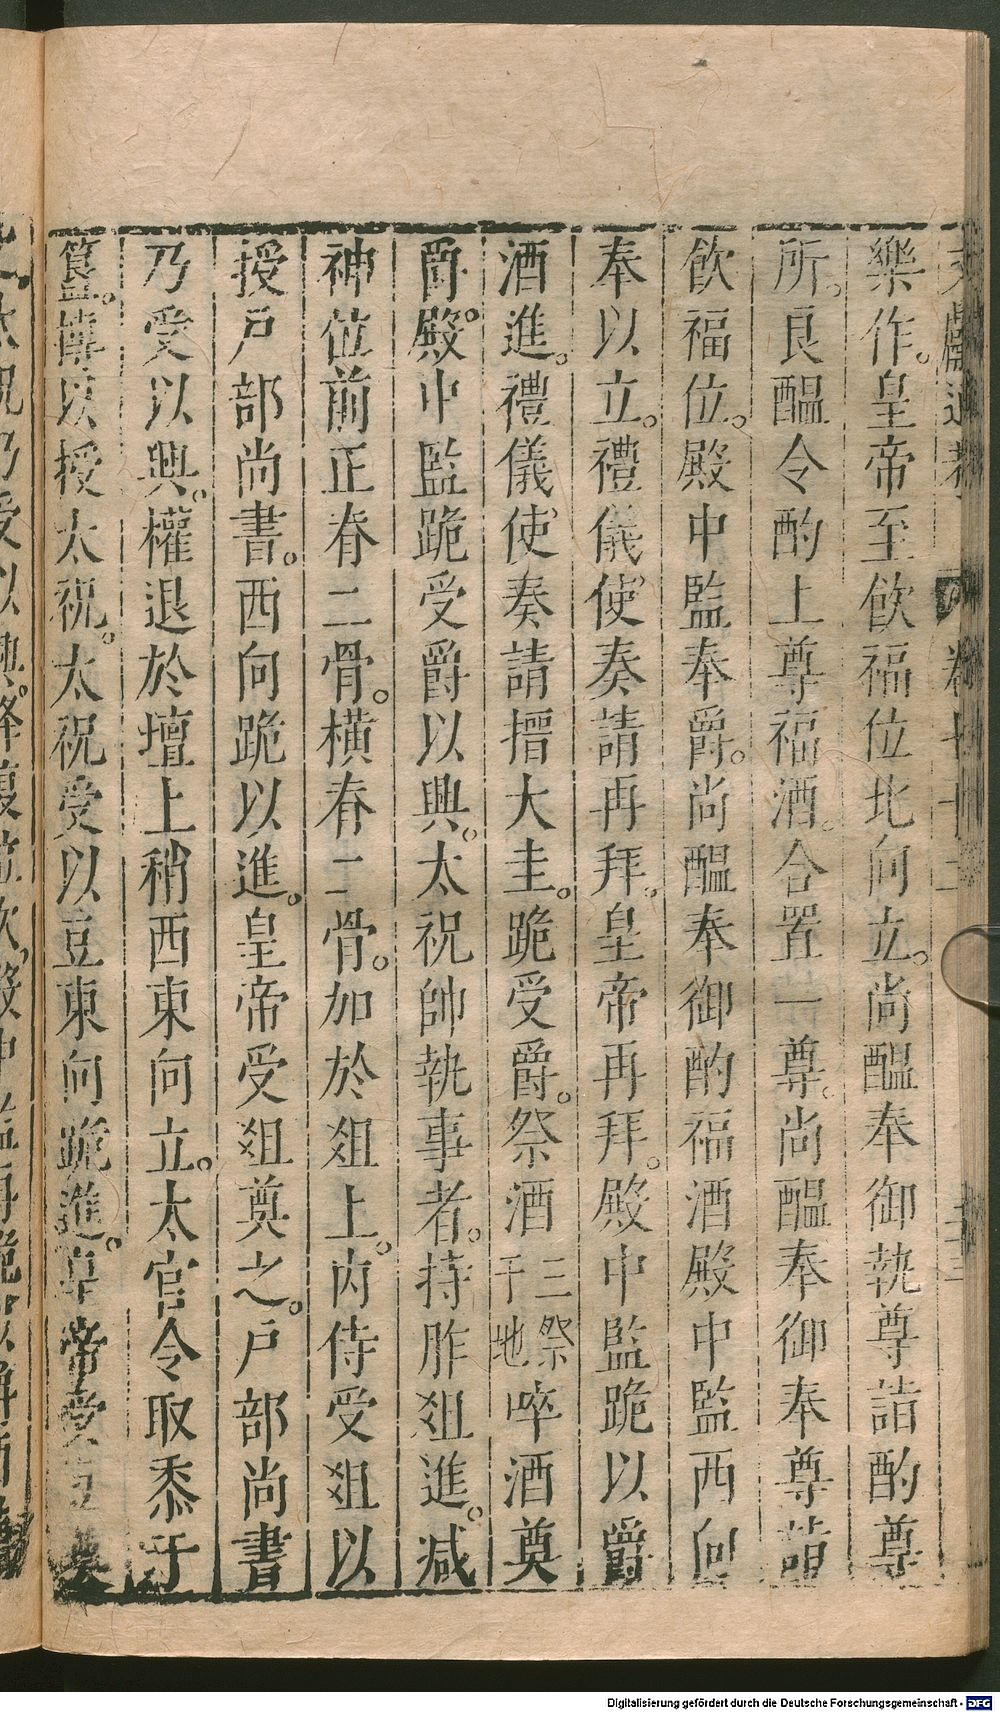 樂作。皇帝至飲福位北向立。尚醞奉御執尊詣酌尊
所。良醞令酌上尊福酒。合置一尊。尚醞奉御奉尊詣
飲福位。殿中監奉爵。尚醞奉御酌福酒殿中監西向
奉以立。禮儀使奏請再拜。皇帝再拜。殿中監跪以爵
酒進。禮儀使奏請搢大圭。跪受爵。祭酒三祭于地啐酒奠
爵。殿中監跪受爵以興。太祝帥執事者。持胙俎進。減
神位前正脊二骨。橫脊二骨。加於俎上。內侍受俎以
授戶部尚書。西向跪以進。皇帝受俎奠之。戶部尚書
乃受以興。權退於壇上稍西東向立。太官令取黍于
簋。摶以授太祝。太祝受以豆東向跪進。皇帝受豆奠
Digitalisierung gefördert durch die Deutsche Forschungsgemeinschaft - DFG